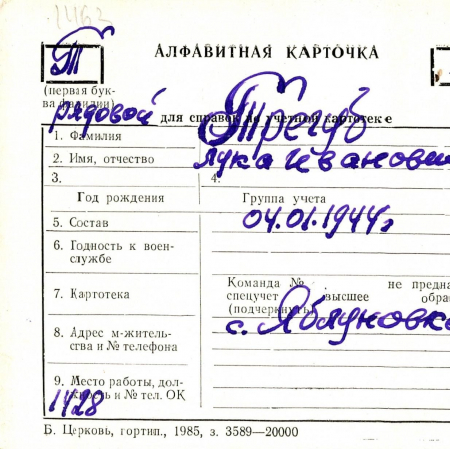 1463
Т
АЛФАВИТНАЯ КАРТОЧКА
(первая бук-
ва фамилии)
рядовой
для справок по учетной картотеке
1. Фамилия Трегуб
2. Имя, отчество Лука Иванович
3. 4.
Год рождения Группа учета
5. Состав 04.01.1944г
6. Годность к воен-
службе
Команда № не предна
7. Картотека спецучет высшее обра
(подчеркнуть)
с. Яблуновка
8. Адрес м-житель-
ства и № телефона
9. Место работы, дол-
жность и № тел. ОК
1428
Б. Церковь, гортип., 1985, з. 3589—20000